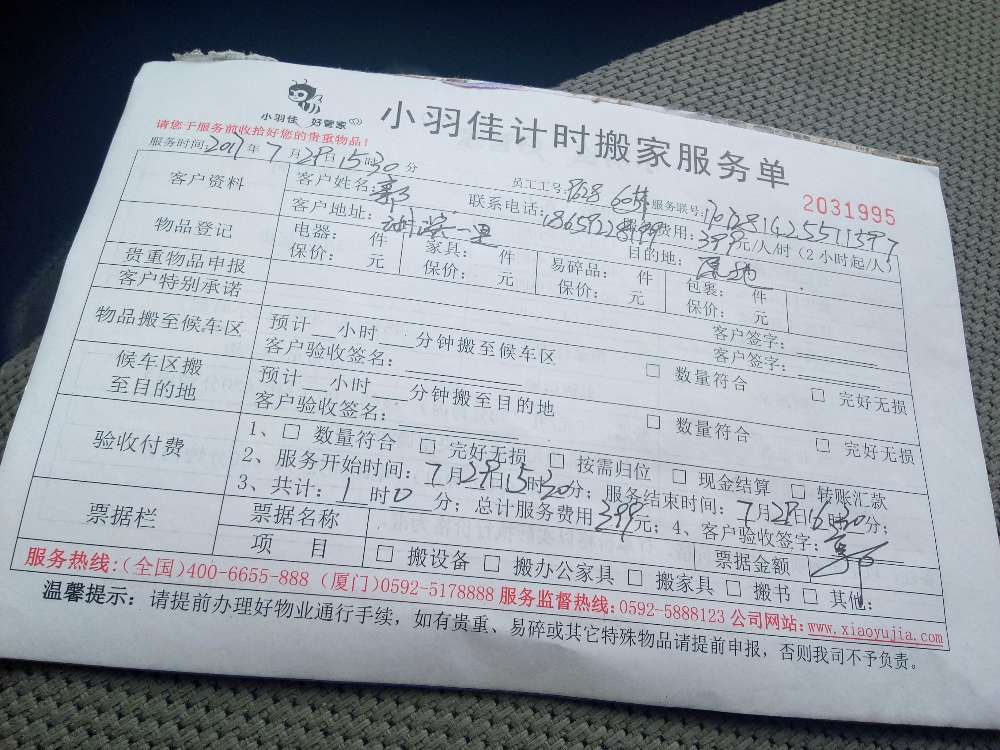 小羽佳 好管家
小羽佳计时搬家服务单
请您于服务前收拾好您的贵重物品!
2031995
服务时间:2017年7月29日15时30分
员工工号: 服务联号:
客户资料
客户姓名:郭 联系电话: 服务费用:399元/人/时(2小时起/人)
客户地址: 目的地:
物品登记
电器: 件 家具: 件 易碎品: 件 包裹: 件
保价: 元 保价: 元 保价: 元 保价: 元
贵重物品申报
客户签字:
客户特别承诺
客户签字:
物品搬至候车区
预计 小时 分钟搬至候车区
客户验收签名: □ 数量符合 □ 完好无损
候车区搬
至目的地
预计 小时 分钟搬至目的地
客户验收签名: □ 数量符合 □ 完好无损
验收付费
1、□ 数量符合 □ 完好无损 □ 按需归位 □ 现金结算 □ 转账汇款
2、服务开始时间:7月29日15时30分;服务结束时间:7月29日16时30分;
3、共计:1时0分;总计服务费用399元;4、客户验收签字:
票据栏
票据名称 票据金额
项 目 □ 搬设备 □ 搬办公家具 □ 搬家具 □ 搬书 □ 其他:
服务热线:(全国)400-6655-888 (厦门)0592-5178888 服务监督热线:0592-5888123 公司网站:www.xiaoyujia.com
温馨提示:请提前办理好物业通行手续,如有贵重、易碎或其它特殊物品请提前申报,否则我司不予负责。